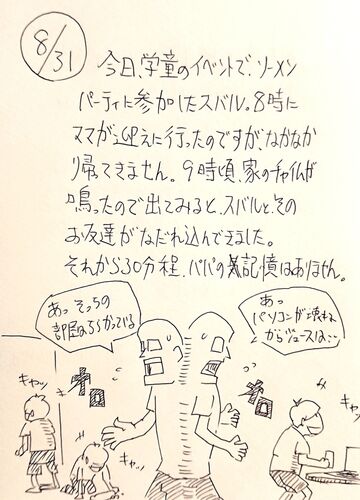 8/31
今日、学童のイベントで、ソーメン
パーティに参加したスバル。8時に
ママが迎えに行ったのですが、なかなか
帰ってきません。9時頃、家のチャイムが
鳴ったので出てみると、スバルとその
お友達がなだれ込んできました。
それから30分程、パパの記憶はありません。
あっ そっちの
部屋はちらかっている
あっ
パソコンが壊れる
からジュースは…
キャッ
オロ
オロ
キャッ
キャッ